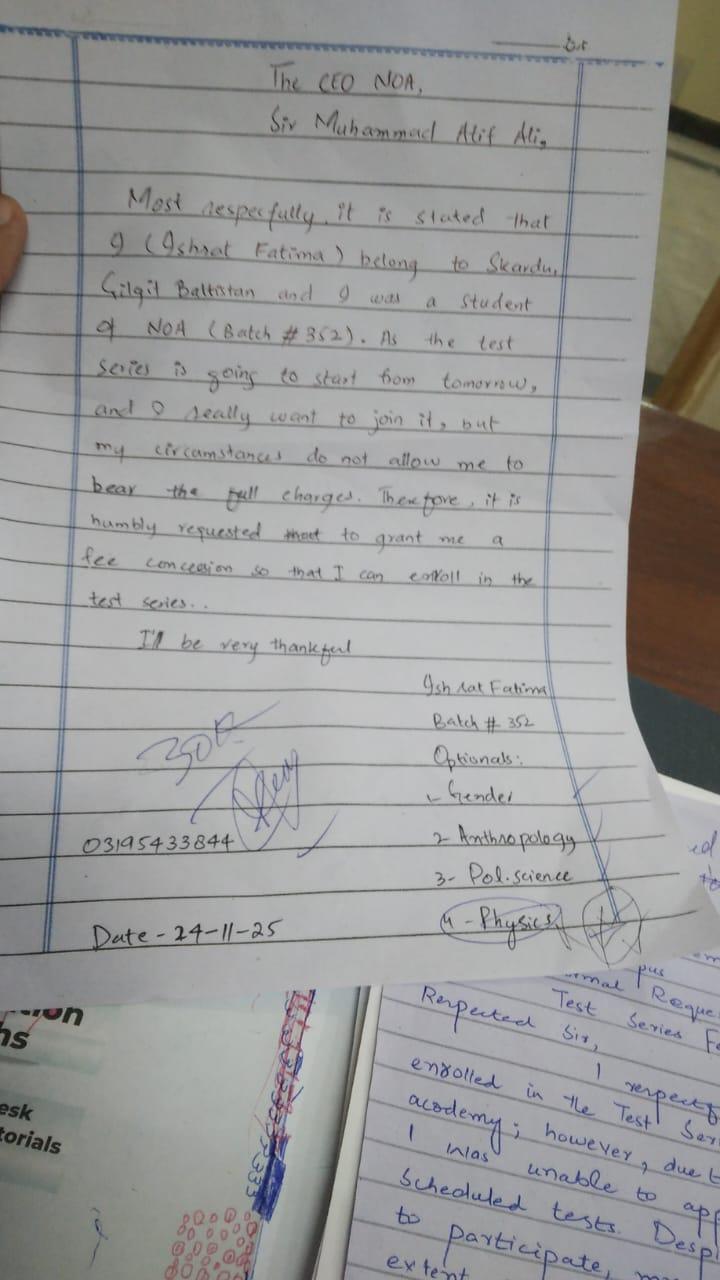 The CEO NOA,
Sir Muhammad Atif Ali,
Most respecfully, it is stated that
I (Ishrat Fatima) belong to Skardu,
Gilgit Baltistan and I was a student
of NOA (Batch # 352). As the test
series is going to start from tomorrow,
and I really want to join it, but
my circumstances do not allow me to
bear the full charges. Therefore, it is
humbly requested to grant me a
fee concession so that I can enroll in the
test series..
I'll be very thankful
Ishrat Fatima
Batch # 352
Optionals:
1- Gender
2- Anthropology
3- Pol.science
4- Physics
03195433844
Date - 24-11-25
esk
torials
Test Series
Respected Sir,
I
enrolled in the Test
academy; however, due
I was unable to
scheduled tests.
to participate,
extent